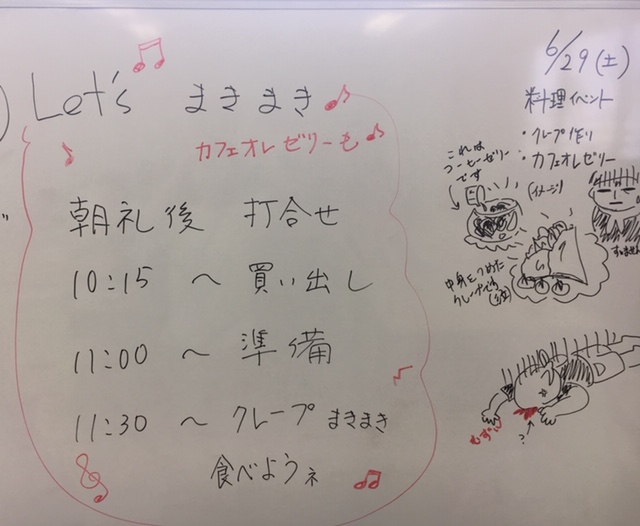 Let's まきまき
カフェオレゼリーも
朝礼後 打合せ
10:15 〜 買い出し
11:00 〜 準備
11:30 〜 クレープ まきまき
食べようネ
6/29(土)
料理イベント
・クレープ作り
・カフェオレゼリー
(イメージ)
これは
コーヒーゼリー
です
すみません
中身をつめた
?